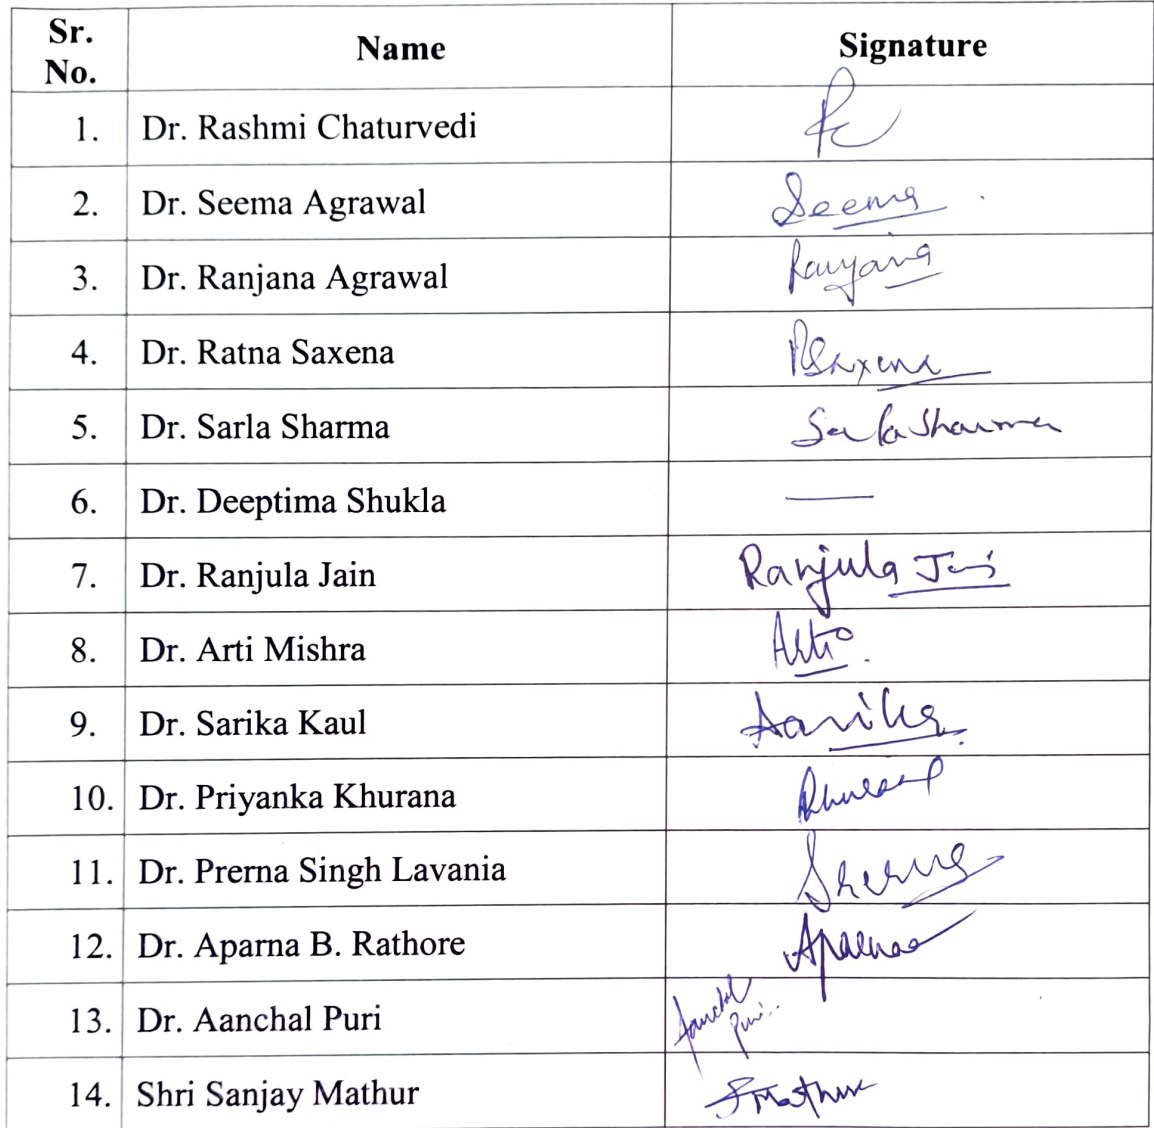 Sr. No. Name Signature
1. Dr. Rashmi Chaturvedi RC
2. Dr. Seema Agrawal Seema
3. Dr. Ranjana Agrawal Ranjana
4. Dr. Ratna Saxena RSaxena
5. Dr. Sarla Sharma Sarla Sharma
6. Dr. Deeptima Shukla —
7. Dr. Ranjula Jain Ranjula Jain
8. Dr. Arti Mishra Arti
9. Dr. Sarika Kaul Sarika
10. Dr. Priyanka Khurana
11. Dr. Prerna Singh Lavania
12. Dr. Aparna B. Rathore Aparna
13. Dr. Aanchal Puri Aanchal Puri
14. Shri Sanjay Mathur SMathur